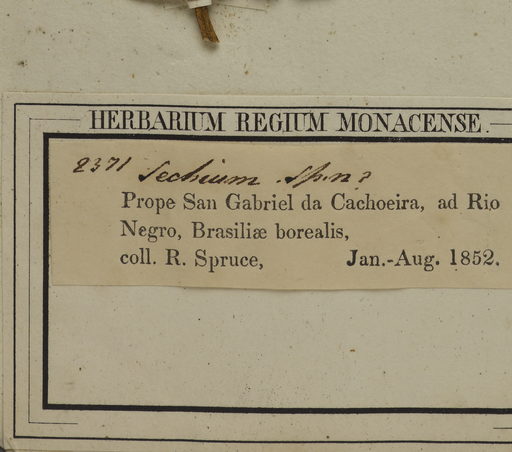 HERBARIUM REGIUM MONACENSE.
2371 Sechium sp.n?
Prope San Gabriel da Cachoeira, ad Rio
Negro, Brasiliæ borealis,
coll. R. Spruce, Jan.-Aug. 1852.